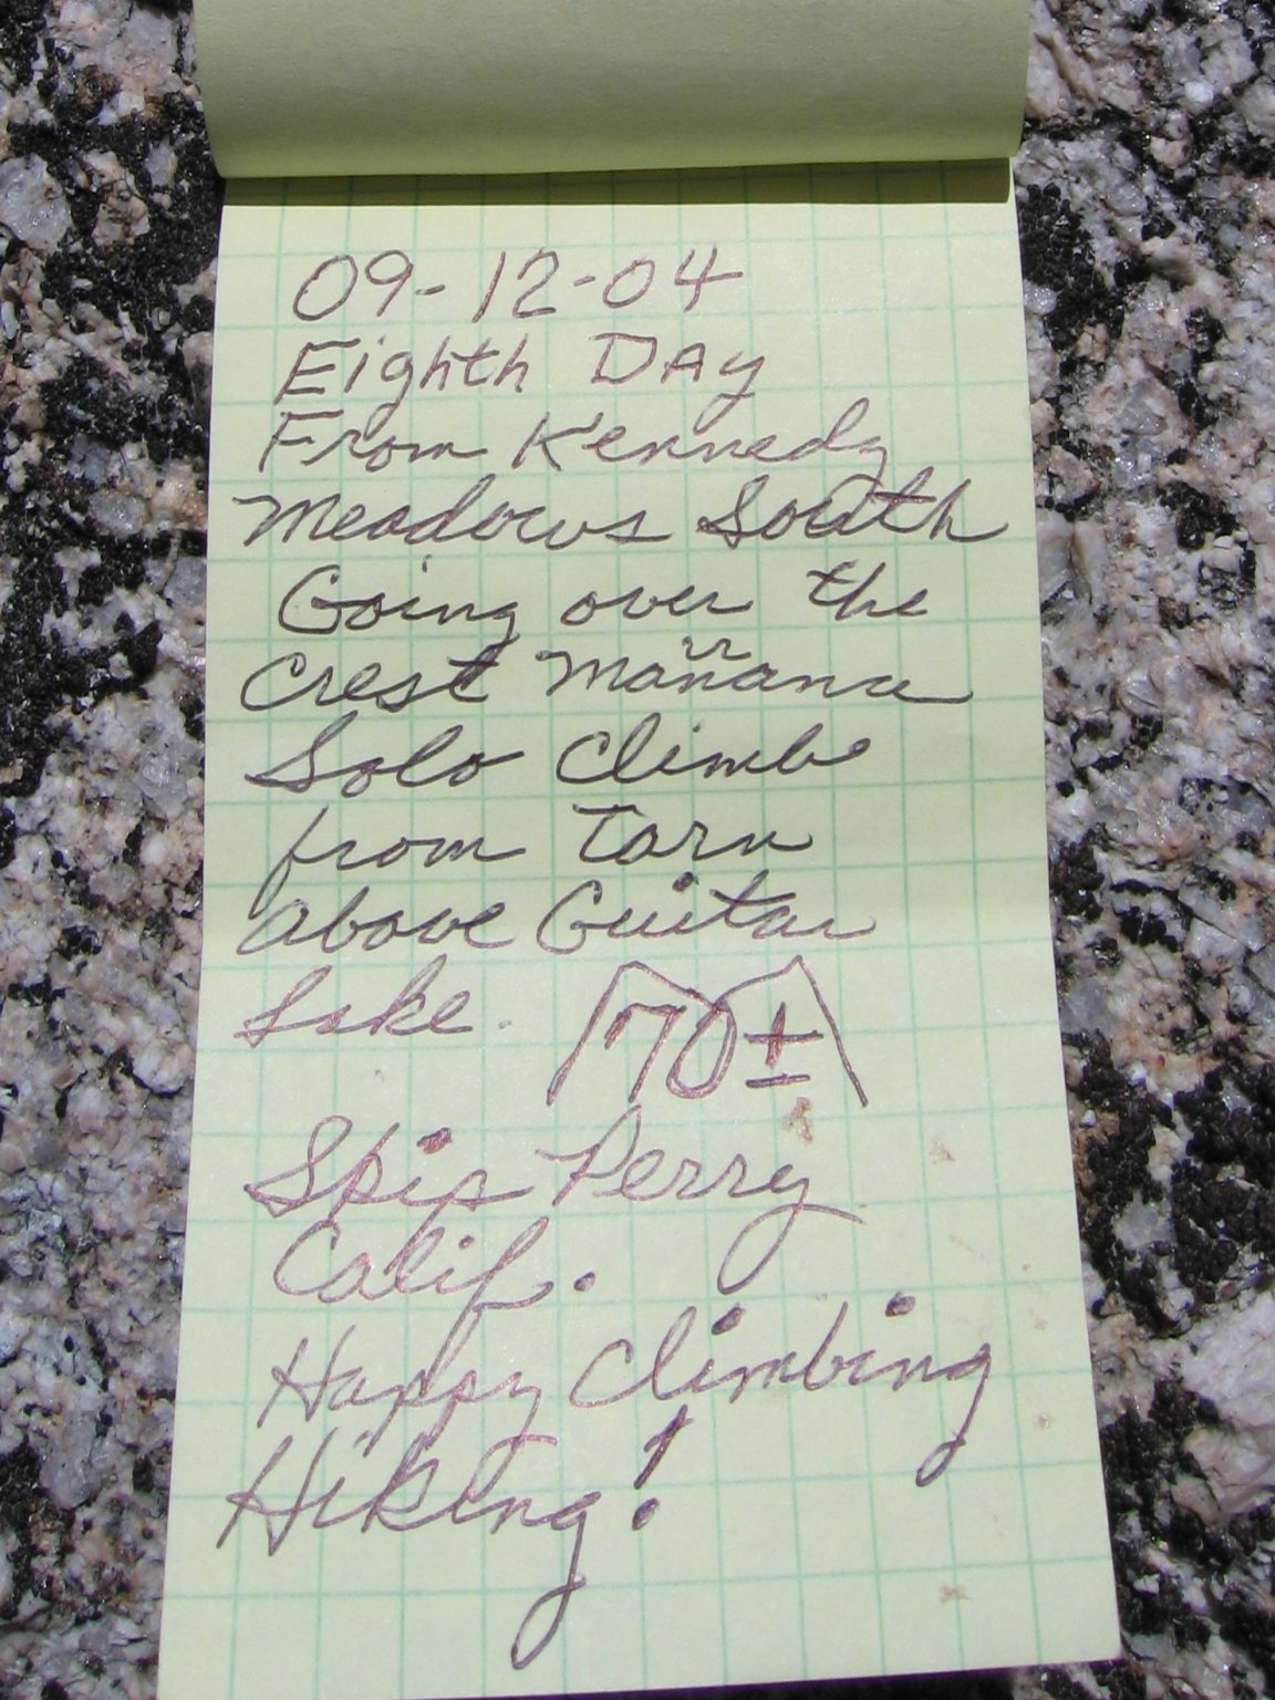 09-12-04
Eighth DAy
From Kennedy
Meadows South
Going over the
Crest Mañana
Solo Climb
from Tarn
above Guitar
Lake. 70±
Skip Perry
Calif.
Happy Climbing
Hiking!